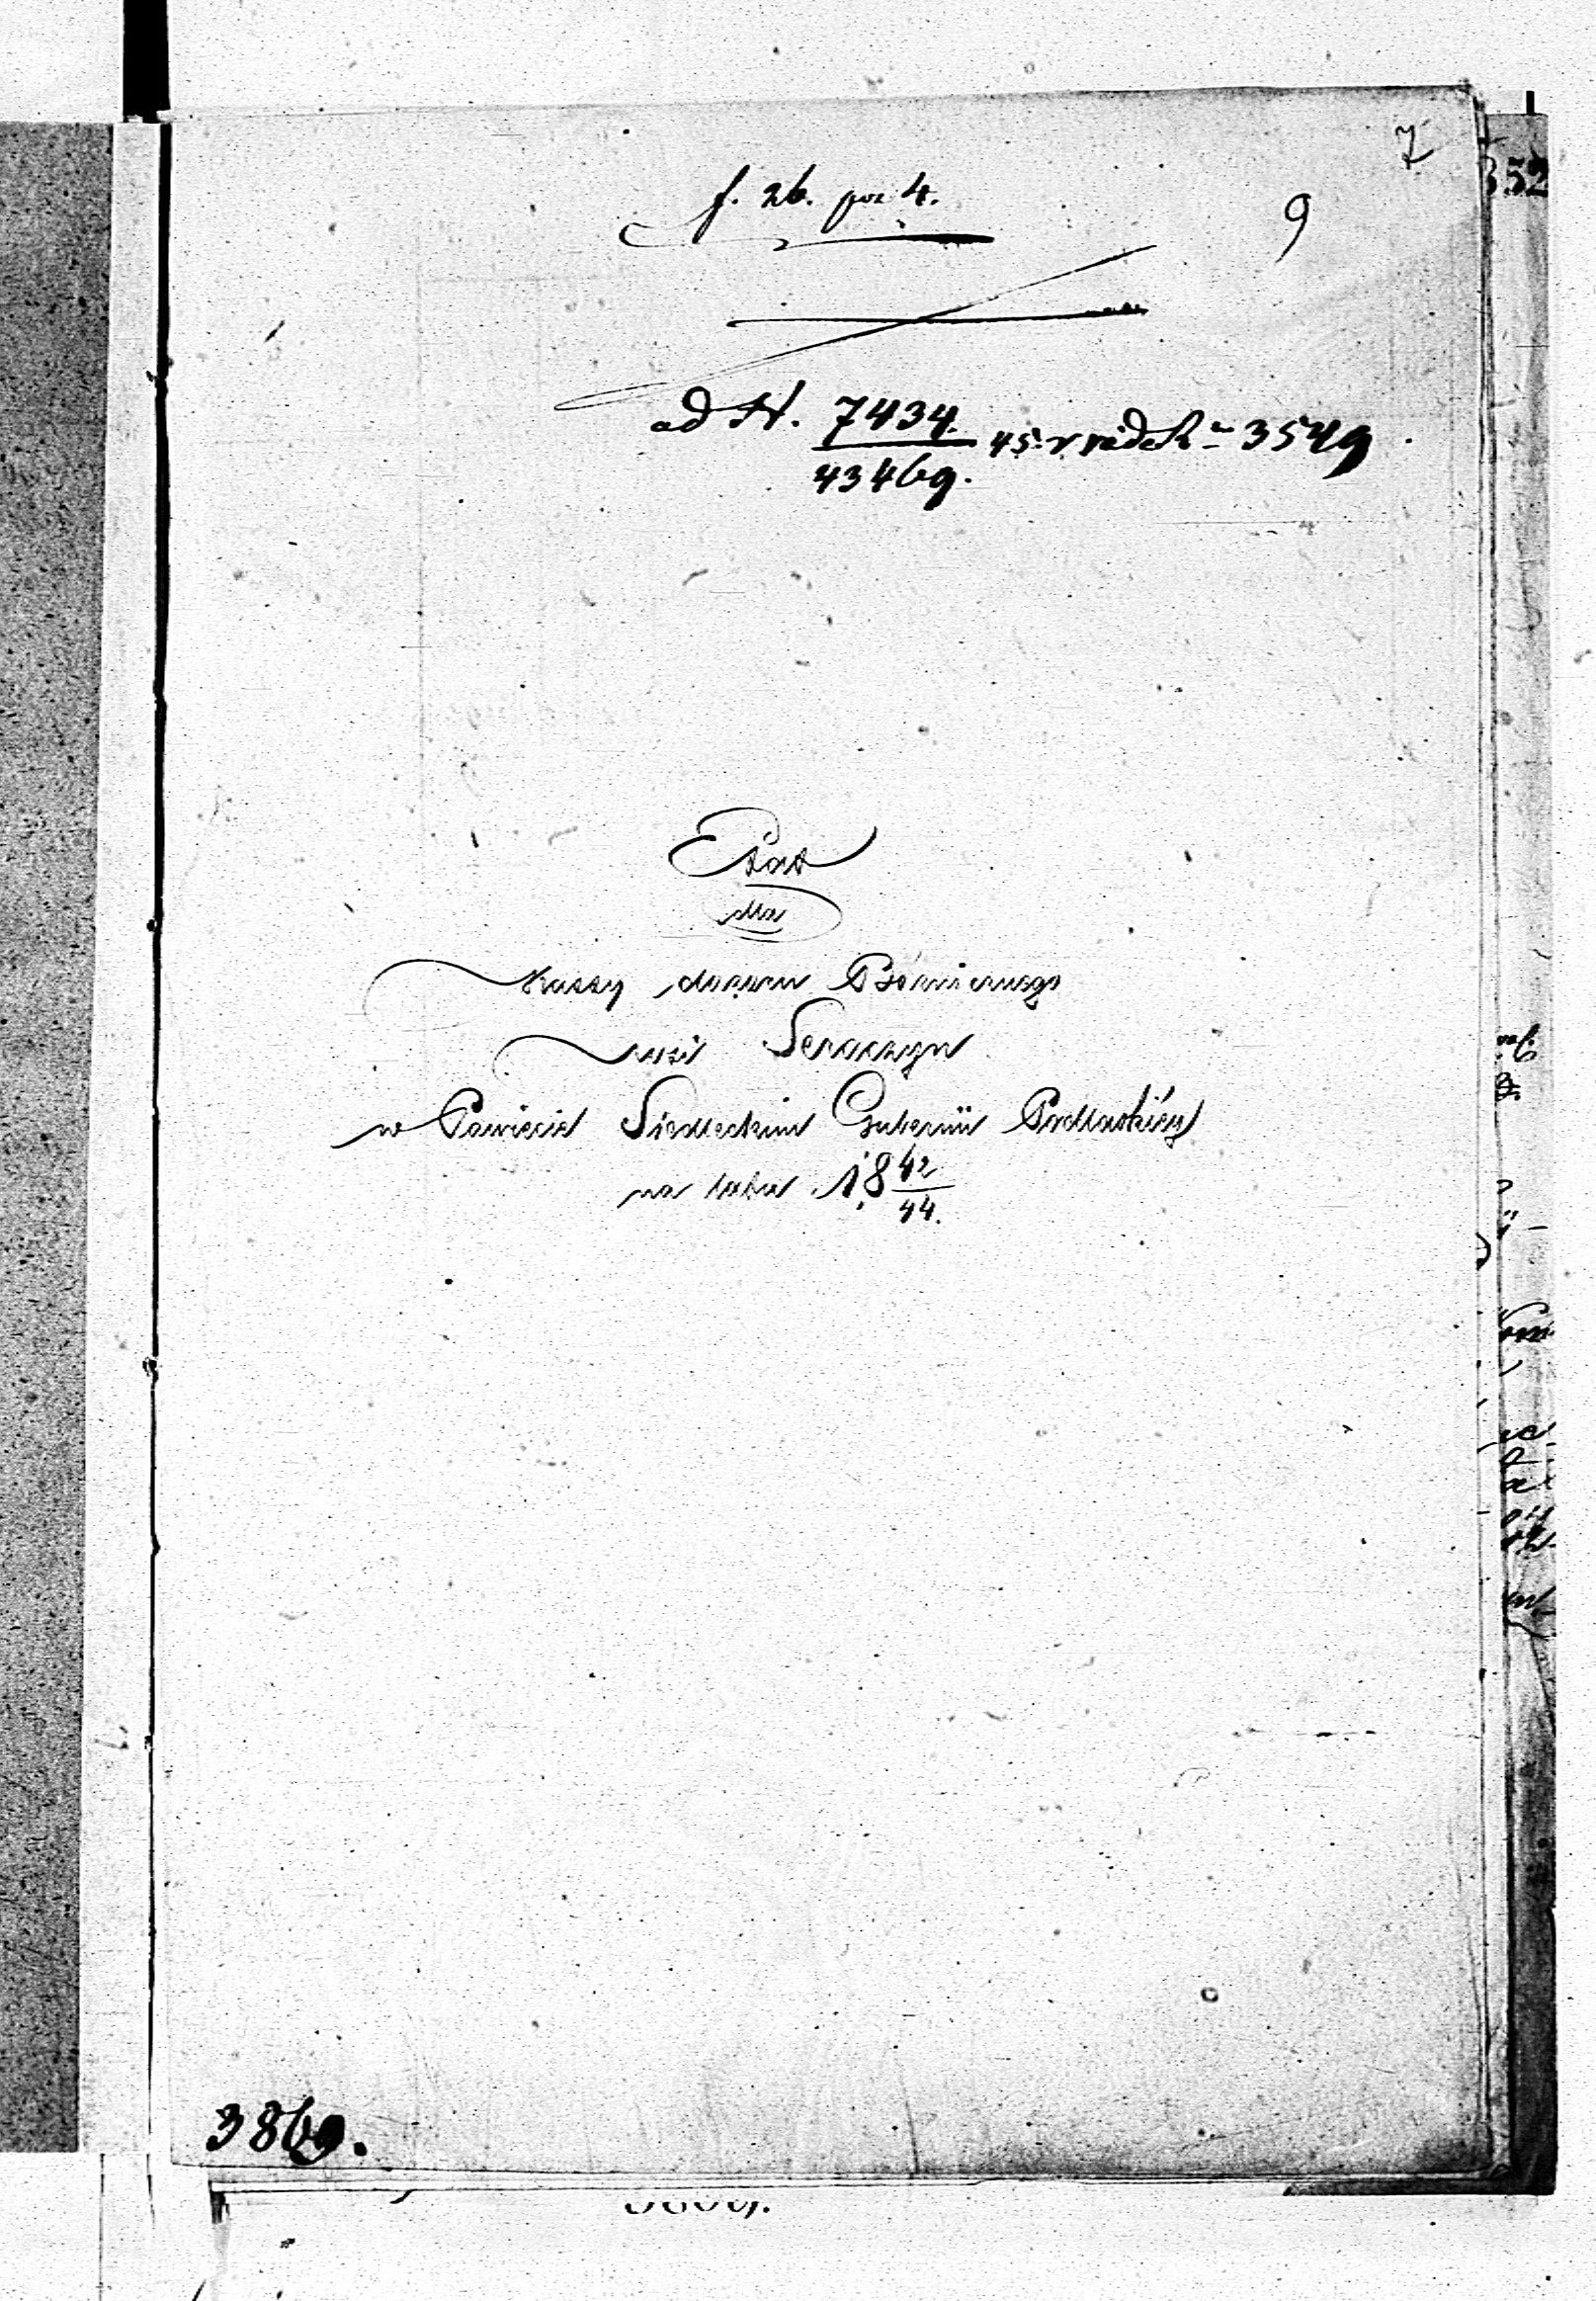 7
352
f. 26. poz 4.
9
ad N. 7434. / 43469. 45. r 3549
Etat
dla
Kassy dozoru Bóżnicznego
wsi Seroczyn
w Powiecie Siedleckim Gubernii Podlaskiéy
na lata 18 42/44.
3869.